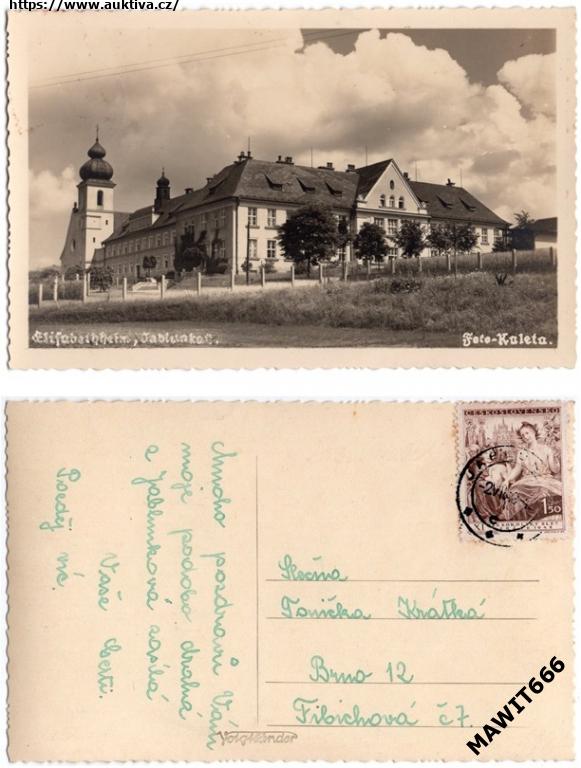 https://www.auktiva.cz/
Elisabethheim, Jablunkau.
Foto-Kaleta.
ČESKOSLOVENSKO
1 50
Mnoho pozdravů Vám
moje podobo drahá
z Jablunkova zasílá
Vaše
Poděj víc.
Slečna
Tonička Krátká
Brno 12
Fibichová č7.
Voigtländer
MAWIT666